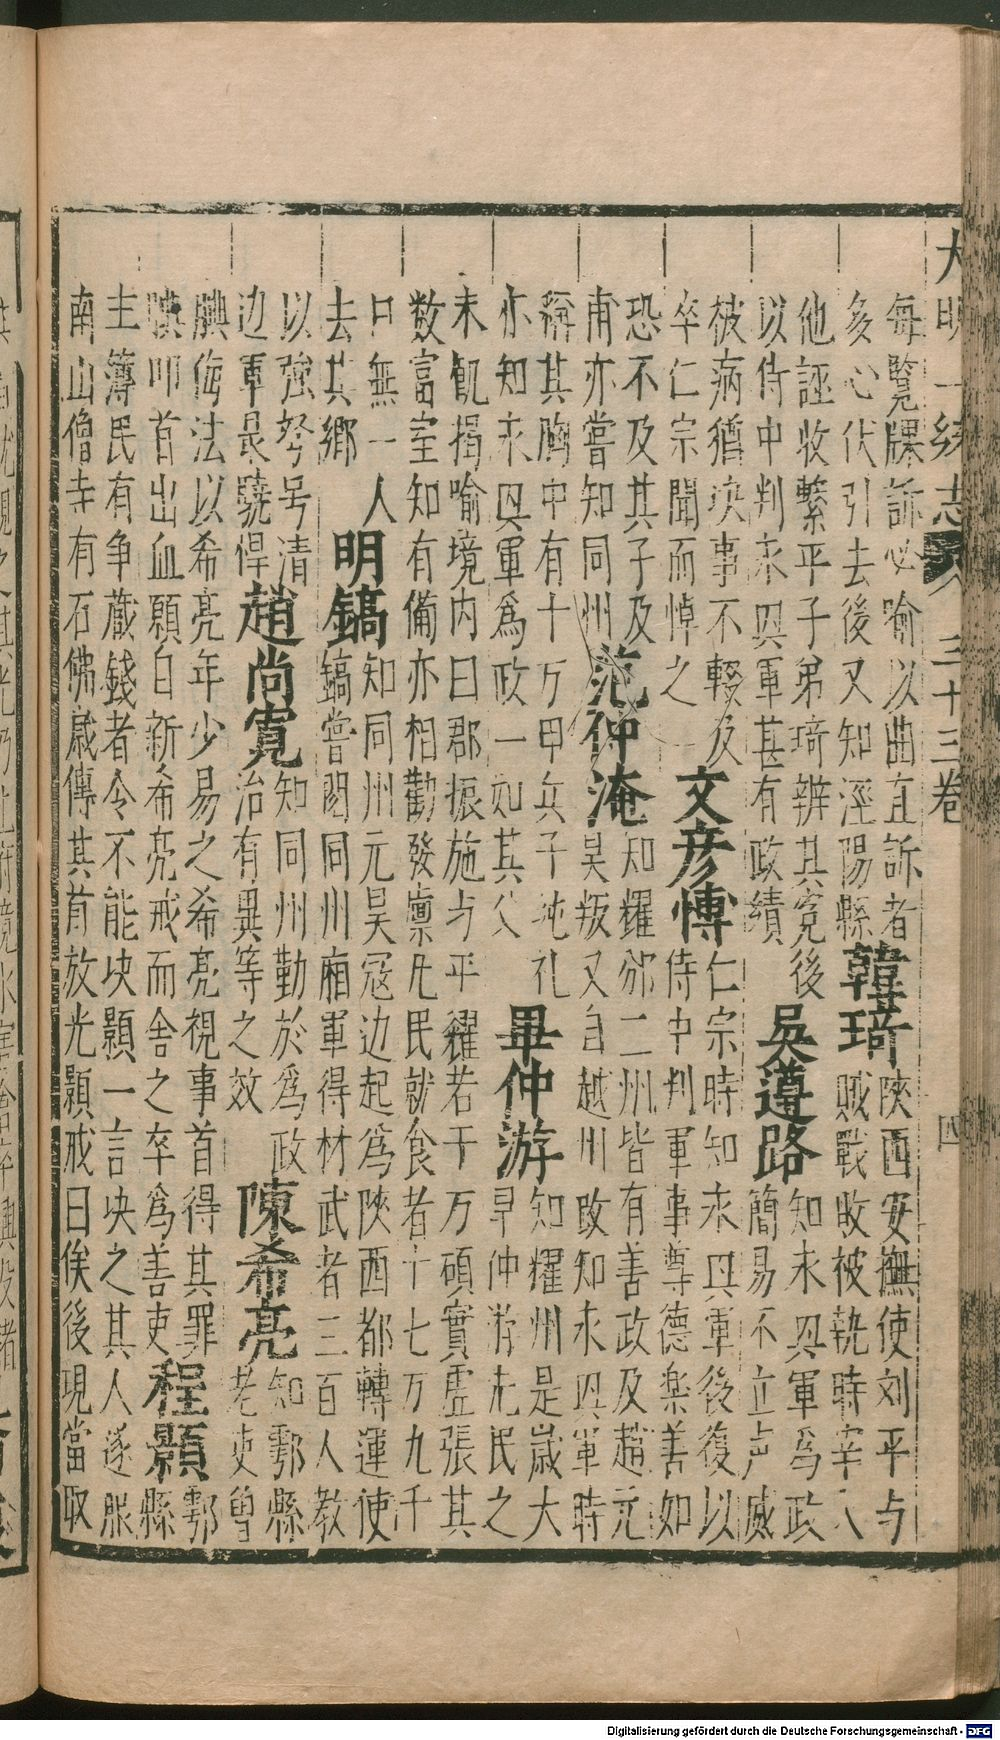 大明一統志 三十三卷 四
每覽牒訴必喻以曲直訴者
多心伏引去後又知涇陽縣
韓琦
陝西安撫使刘平与
賊戰敗被執時宰入
他誣收繫平子弟琦辨其寃後
以侍中判永興軍甚有政績
吳遵路
知永興軍為政
簡易不立声威
被病猶決事不輟及
卒仁宗聞而悼之
文彦博
仁宗時知永興軍後復以
侍中判軍事尊德楽善如
恐不及其子及
甫亦嘗知同州
范仲淹
知耀邠二州皆有善政及趙元
昊叛又自越州改知永興軍時
稱其胸中有十万甲兵子純礼
亦知永興軍為政一如其父
畢仲游
知耀州是歲大
旱仲游先民之
未飢揭喻境内曰郡振施与平糴若干万碩實虛張其
数富室知有備亦相勸發廪凡民就食者十七万九千
口無一人
去其鄉
明鎬
知同州元昊冦边起為陝西都轉運使
鎬嘗閲同州廂軍得材武者三百人教
以強弩号清
边軍最驍悍
趙尚寛
知同州勤於為政
治有異等之效
陳希亮
知鄠縣
老吏曽
腆侮法以希亮年少易之希亮視事首得其罪
腆叩首出血願自新希亮戒而舍之卒為善吏
程顥
鄠
縣
主簿民有争藏錢者令不能决顥一言决之其人遂服
南山僧寺有石佛歲傳其首放光顥戒曰俟後現當取
Digitalisierung gefördert durch die Deutsche Forschungsgemeinschaft - DFG